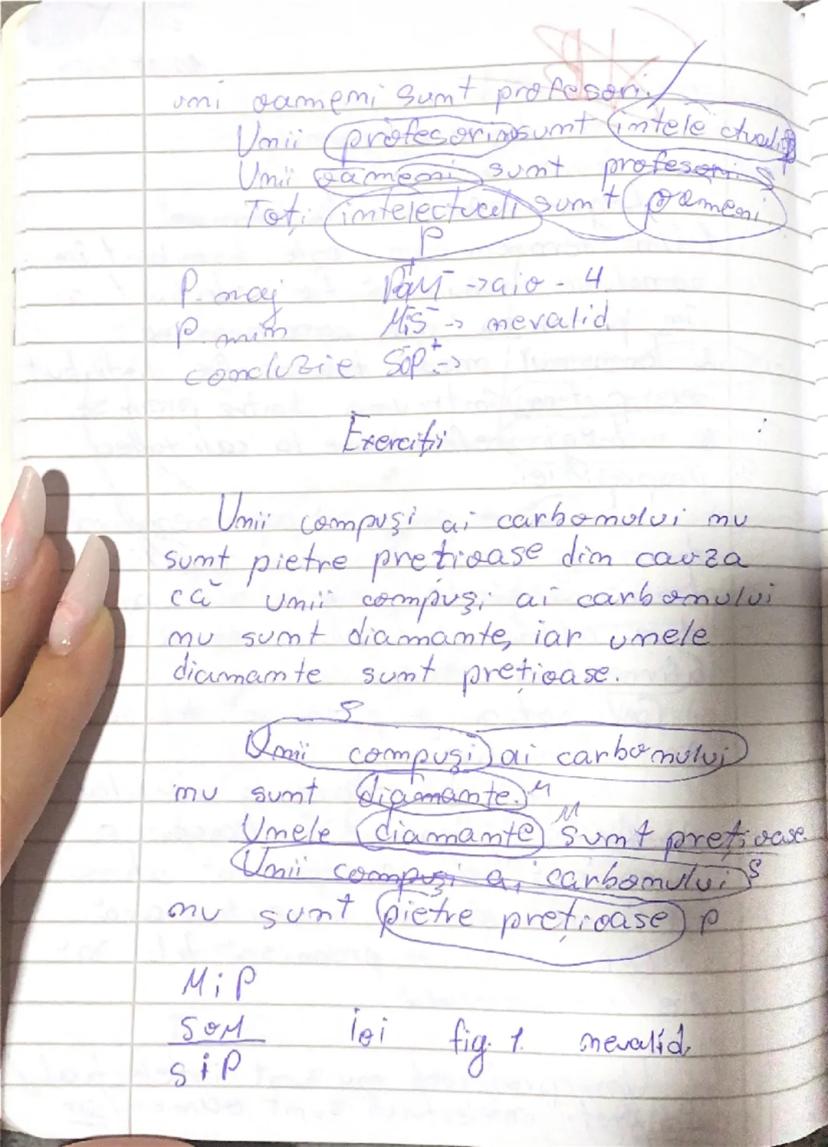 unii oameni sunt profesori.
Unii profesori sunt intelectuali P
Unii oameni sunt profesori S
Toți intelectuali sunt oameni
P
P. maj PaM⁻ → aio - 4
P. min MiS⁻ → nevalid
concluzie SoP⁺ →
Exerciții
Unii compuși ai carbonului nu
sunt pietre prețioase din cauza
că unii compuși ai carbonului
nu sunt diamante, iar unele
diamante sunt prețioase.
S
Unii compuși ai carbonului
nu sunt diamante. M
M
Unele diamante sunt prețioase
Unii compuși ai carbonului S
nu sunt pietre prețioase P
MiP
SOM ioi fig. 1. nevalid.
SiP